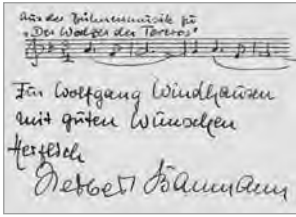 Aus der Bühnenmusik zu
„Der Walzer der Toreros"
Für Wolfgang Windhausen
mit guten Wünschen
Herzlich
Herbert Baumann